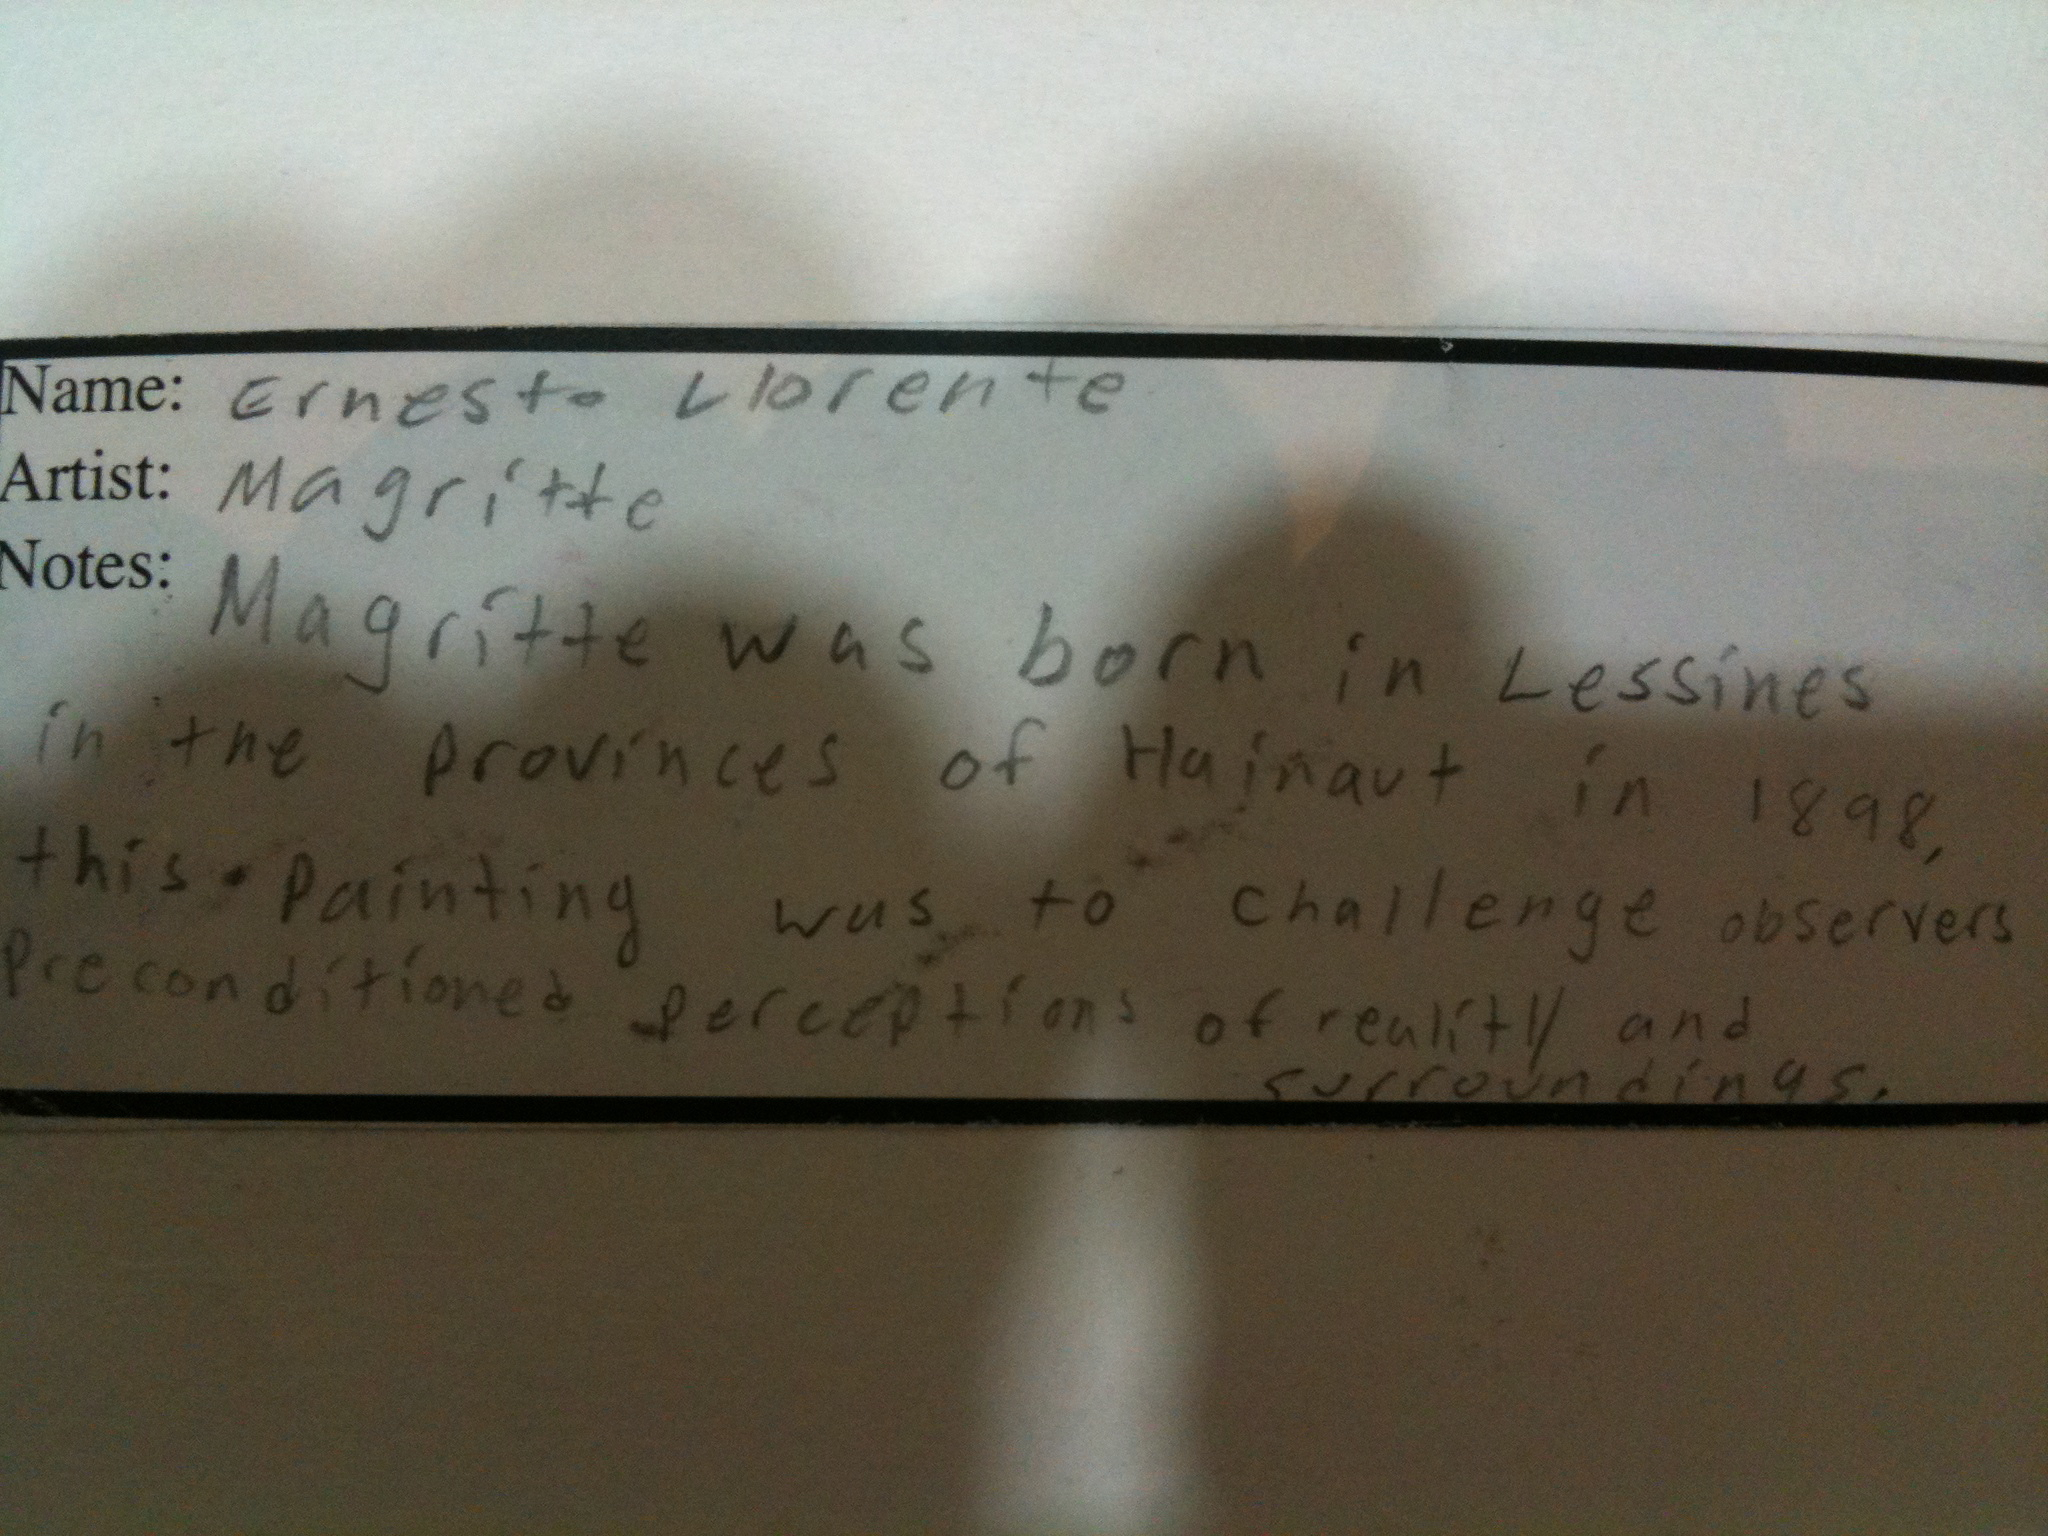 Name: Ernesto Llorente
Artist: Magritte
Notes: Magritte was born in Lessines
in the provinces of Hainaut in 1898,
this Painting was to challenge observers
Preconditioned perceptions of reality and
surroundings.